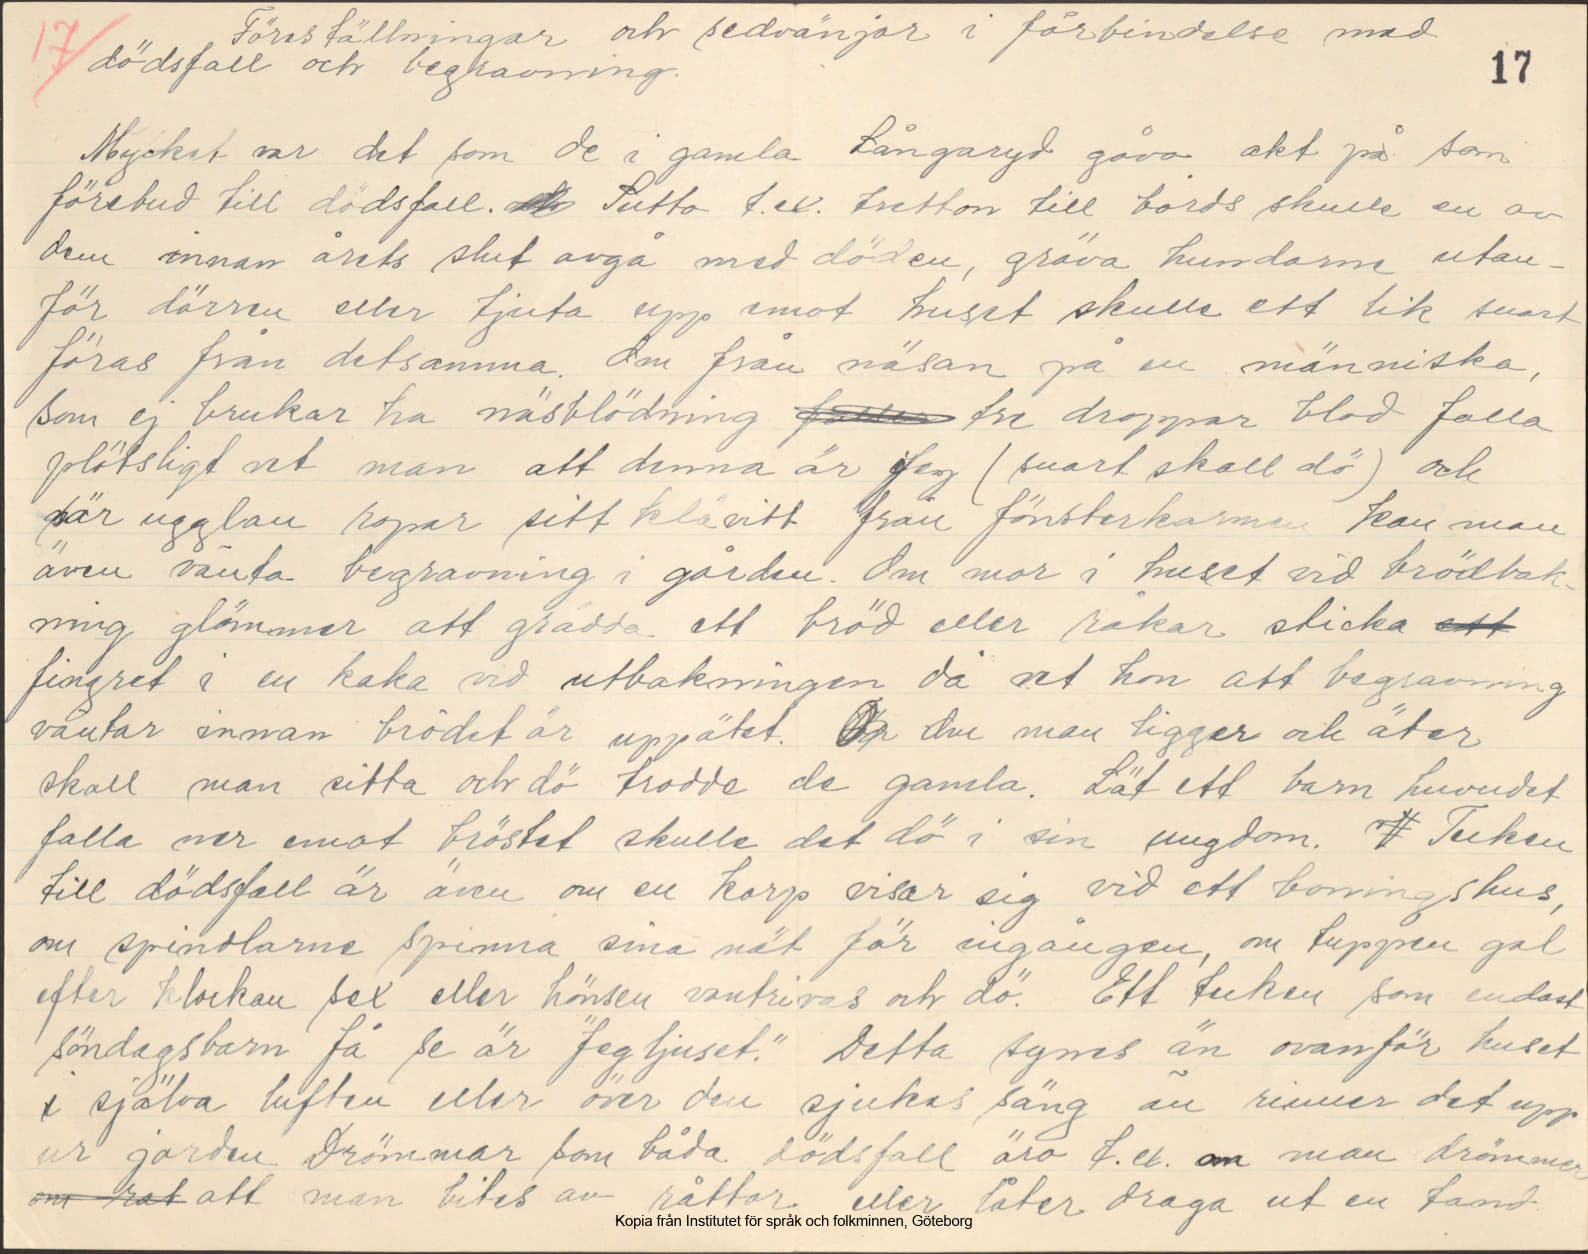 17
Föreställningar och sedvänjor i förbindelse med
dödsfall och begravning.
17
Mycket var det som de i gamla Långaryd gåvo akt på som
förebud till dödsfall. Sutto t.ex. tretton till bords skulle en av
dem innan årets slut avgå med döden, gräva hundarne utan-
för dörren eller tjuta upp emot huset skulle ett lik snart
föras från detsamma. Om från näsan på en människa,
som ej brukar ha näsblödning falla tre droppar blod falla
plötsligt vet man att denna är feg (snart skall dö) och
när ugglan ropar sitt klävitt från fönsterkarmen kan man
även vänta begravning i gården. Om mor i huset vid brödbak-
ning glömmer att grädda ett bröd eller råkar sticka ett
fingret i en kaka vid utbakningen då vet hon att begravning
väntar innan brödet är uppätet. Der man ligger och äter
skall man sitta och dö trodde de gamla. Låt ett barn huvudet
falla ner emot bröstet skulle det dö i sin ungdom. Tecken
till dödsfall är även om en korp visar sig vid ett boningshus,
om spindlarne spinna sina nät för ingången, om tuppen gal
efter klockan sex eller hönsen vantrivas och dö. Ett tecken som endast
söndagsbarn få se är "fegljuset." Detta synes än ovanför huset
i själva luften eller över den sjukes säng än rinner det upp
ur jorden Drömmar som båda dödsfall äro t.ex. om man drömmer
om rat att man bites av råttor eller låter draga ut en tand
Kopia från Institutet för språk och folkminnen, Göteborg